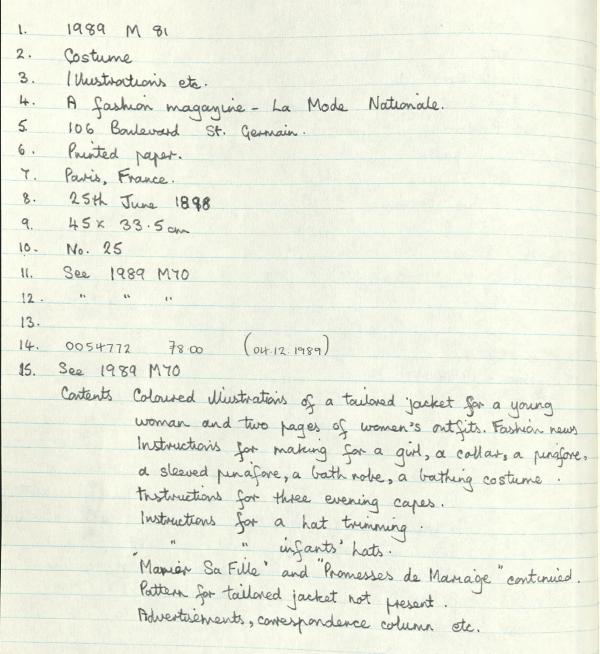 1. 1989 M 81
2. Costume
3. Illustrations etc.
4. A fashion magazine - La Mode Nationale.
5. 106 Boulevard St. Germain.
6. Printed paper.
7. Paris, France.
8. 25th June 1898
9. 45 x 33.5 cm
10. No. 25
11. See 1989 M70
12. " " "
13.
14. 0054772 78 00 (04.12.1989)
15. See 1989 M70
Contents Coloured illustrations of a tailored jacket for a young
woman and two pages of women's outfits. Fashion news
Instructions for making for a girl, a collar, a pinafore,
a sleeved pinafore, a bath robe, a bathing costume.
Instructions for three evening capes.
Instructions for a hat trimming.
" " infants' hats.
"Marier Sa Fille" and "Promesses de Mariage" continued.
Pattern for tailored jacket not present.
Advertisements, correspondence column etc.